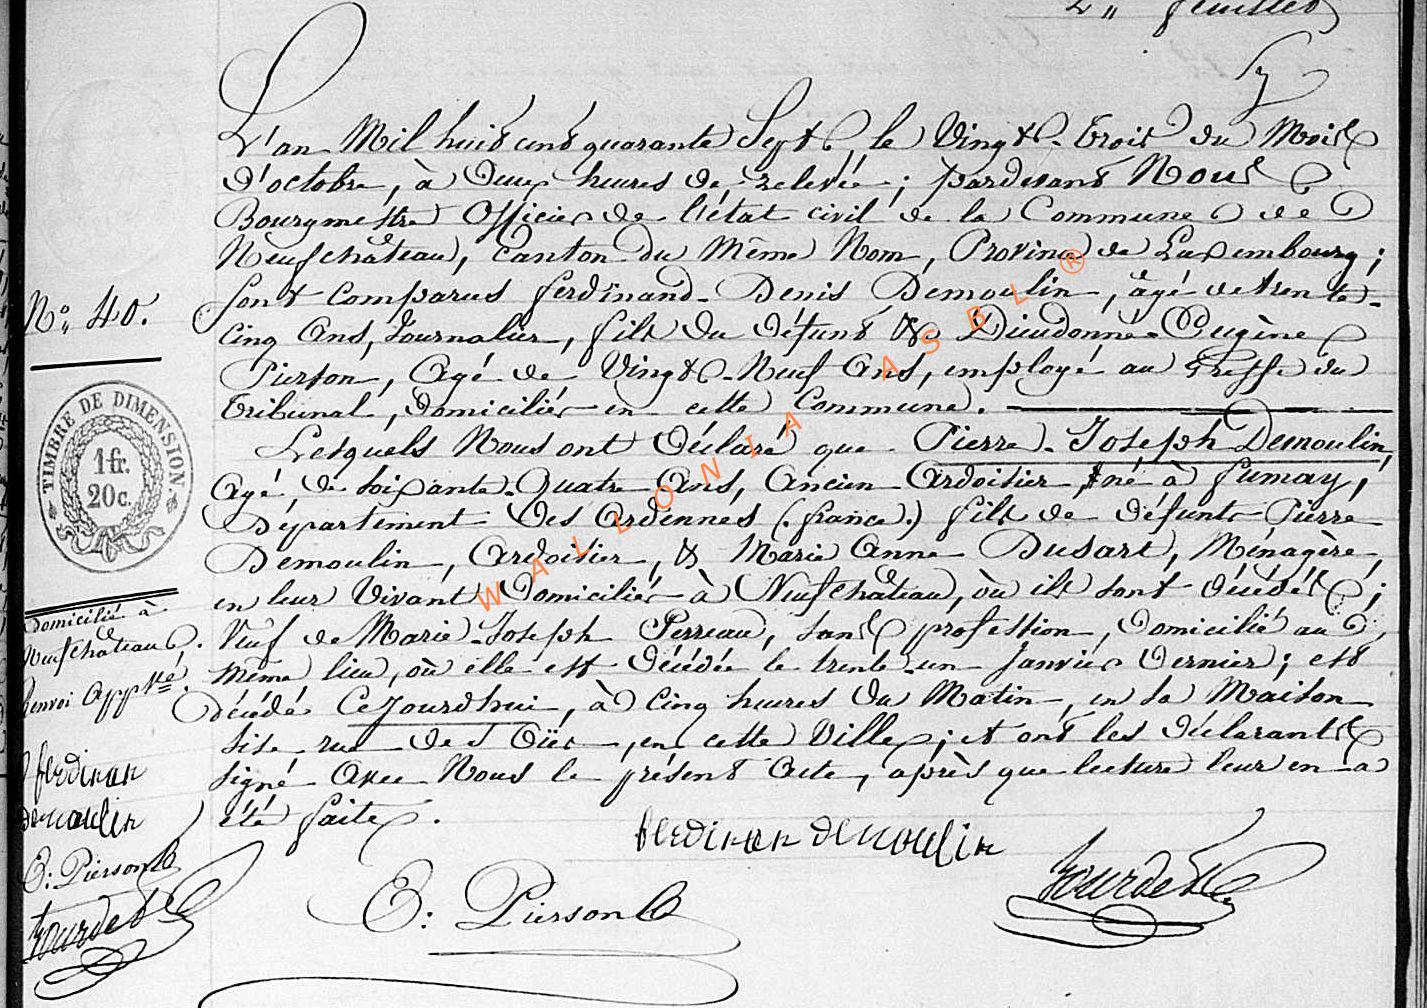 2,, feuillet
L'an Mil huit cent quarante Sept, le Vingt-trois du Mois
d'octobre, à Deux heures de relevée; pardevant Nous
Bourgmestre Officier de l'état civil de la Commune de
Neufchâteau, Canton du Même Nom, Province de Luxembourg;
sont comparus ferdinand-Denis Demoulin, âgé de trente-
cinq Ans, Journalier, fils du défunt & Dieudonné-Eugène
Pierson, Agé de Vingt-Neuf Ans, employé au Greffe du
tribunal, domiciliés en cette Commune.
Lesquels Nous ont Déclaré que Pierre-Joseph Demoulin,
Agé de soixante-Quatre Ans, Ancien Ardoisier, né à fumay,
Département des Ardennes (.france.) fils de défunts Pierre
Demoulin, Ardoisier, & Marie Anne Dusart, Ménagère,
en leur Vivant Domiciliés à Neufchâteau, où ils sont décédés;
Veuf de Marie-Joseph Perreau, sans profession, Domicilié au
même lieu, où elle est décédée le trente un Janvier dernier; est
décédé Cejourdhui, à Cinq heures du Matin, en sa Maison
sise rue des en cette Ville; et ont les déclarants
signé Avec Nous le présent Acte, après que lecture leur en a
été faite.
N° 40.
TIMBRE DE DIMENSION
1 fr.
20c.
Domicilié à
Neufchâteau.
Renvoi appvé.
ferdinan
demoulin
E: Pierson
ferdinan demoulin
E: Pierson
WALLONIA ASBL ®